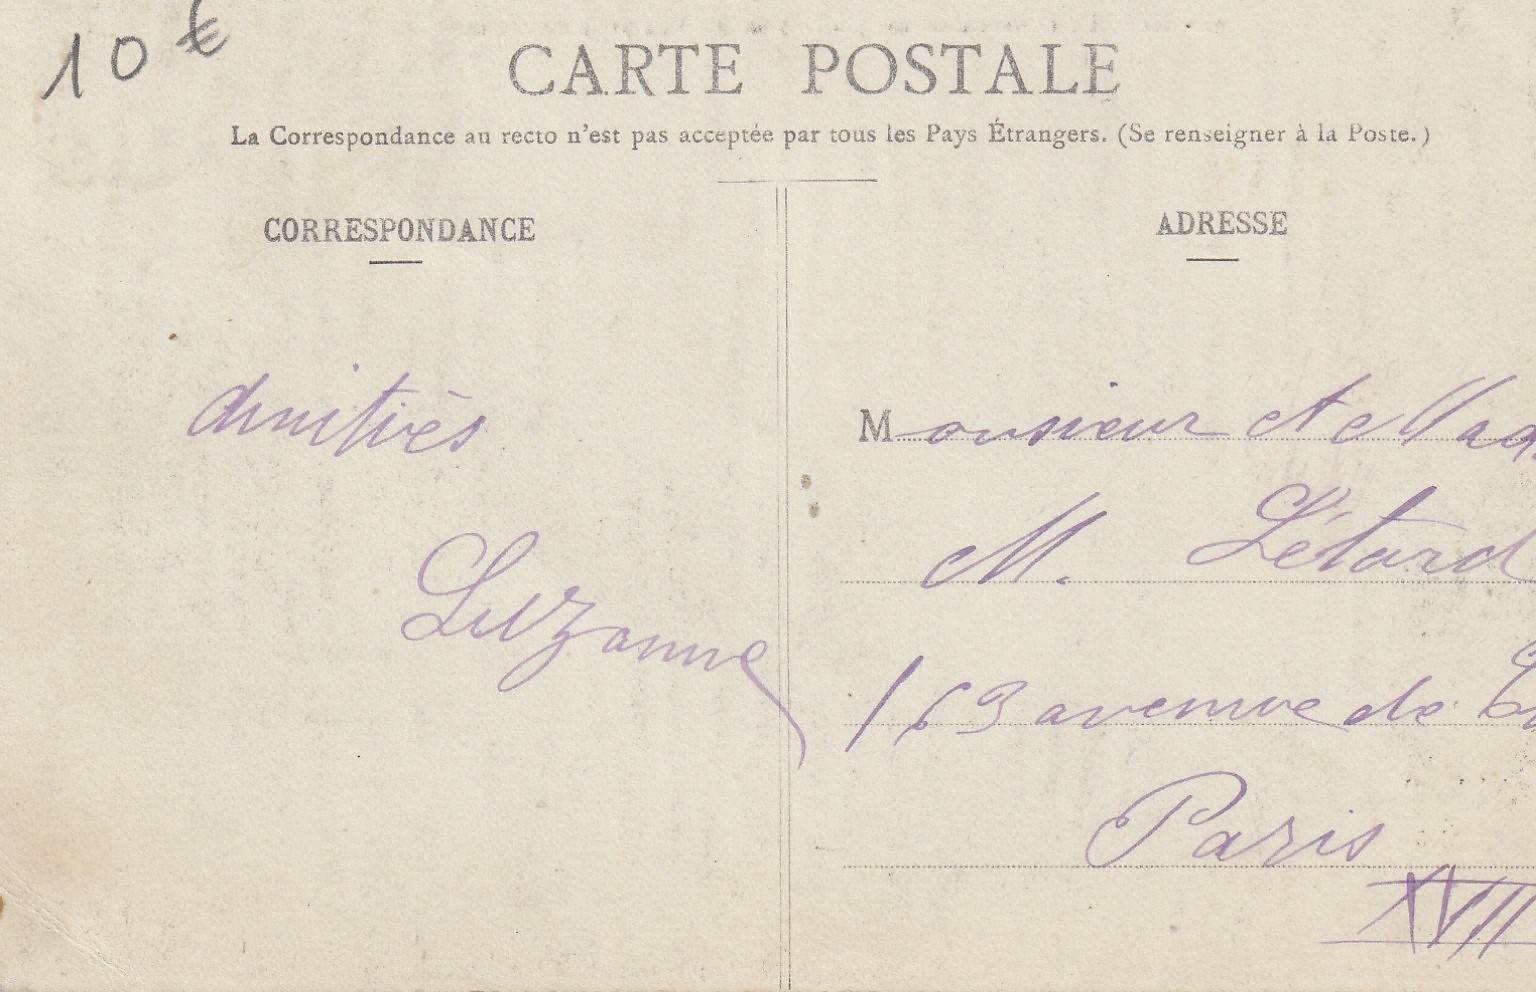 10 €
CARTE POSTALE
La Correspondance au recto n'est pas acceptée par tous les Pays Étrangers. (Se renseigner à la Poste.)
CORRESPONDANCE
amitiès
Suzanne
ADRESSE
Monsieur et Mad
M. Létard
163 avenue de
Paris
XVII